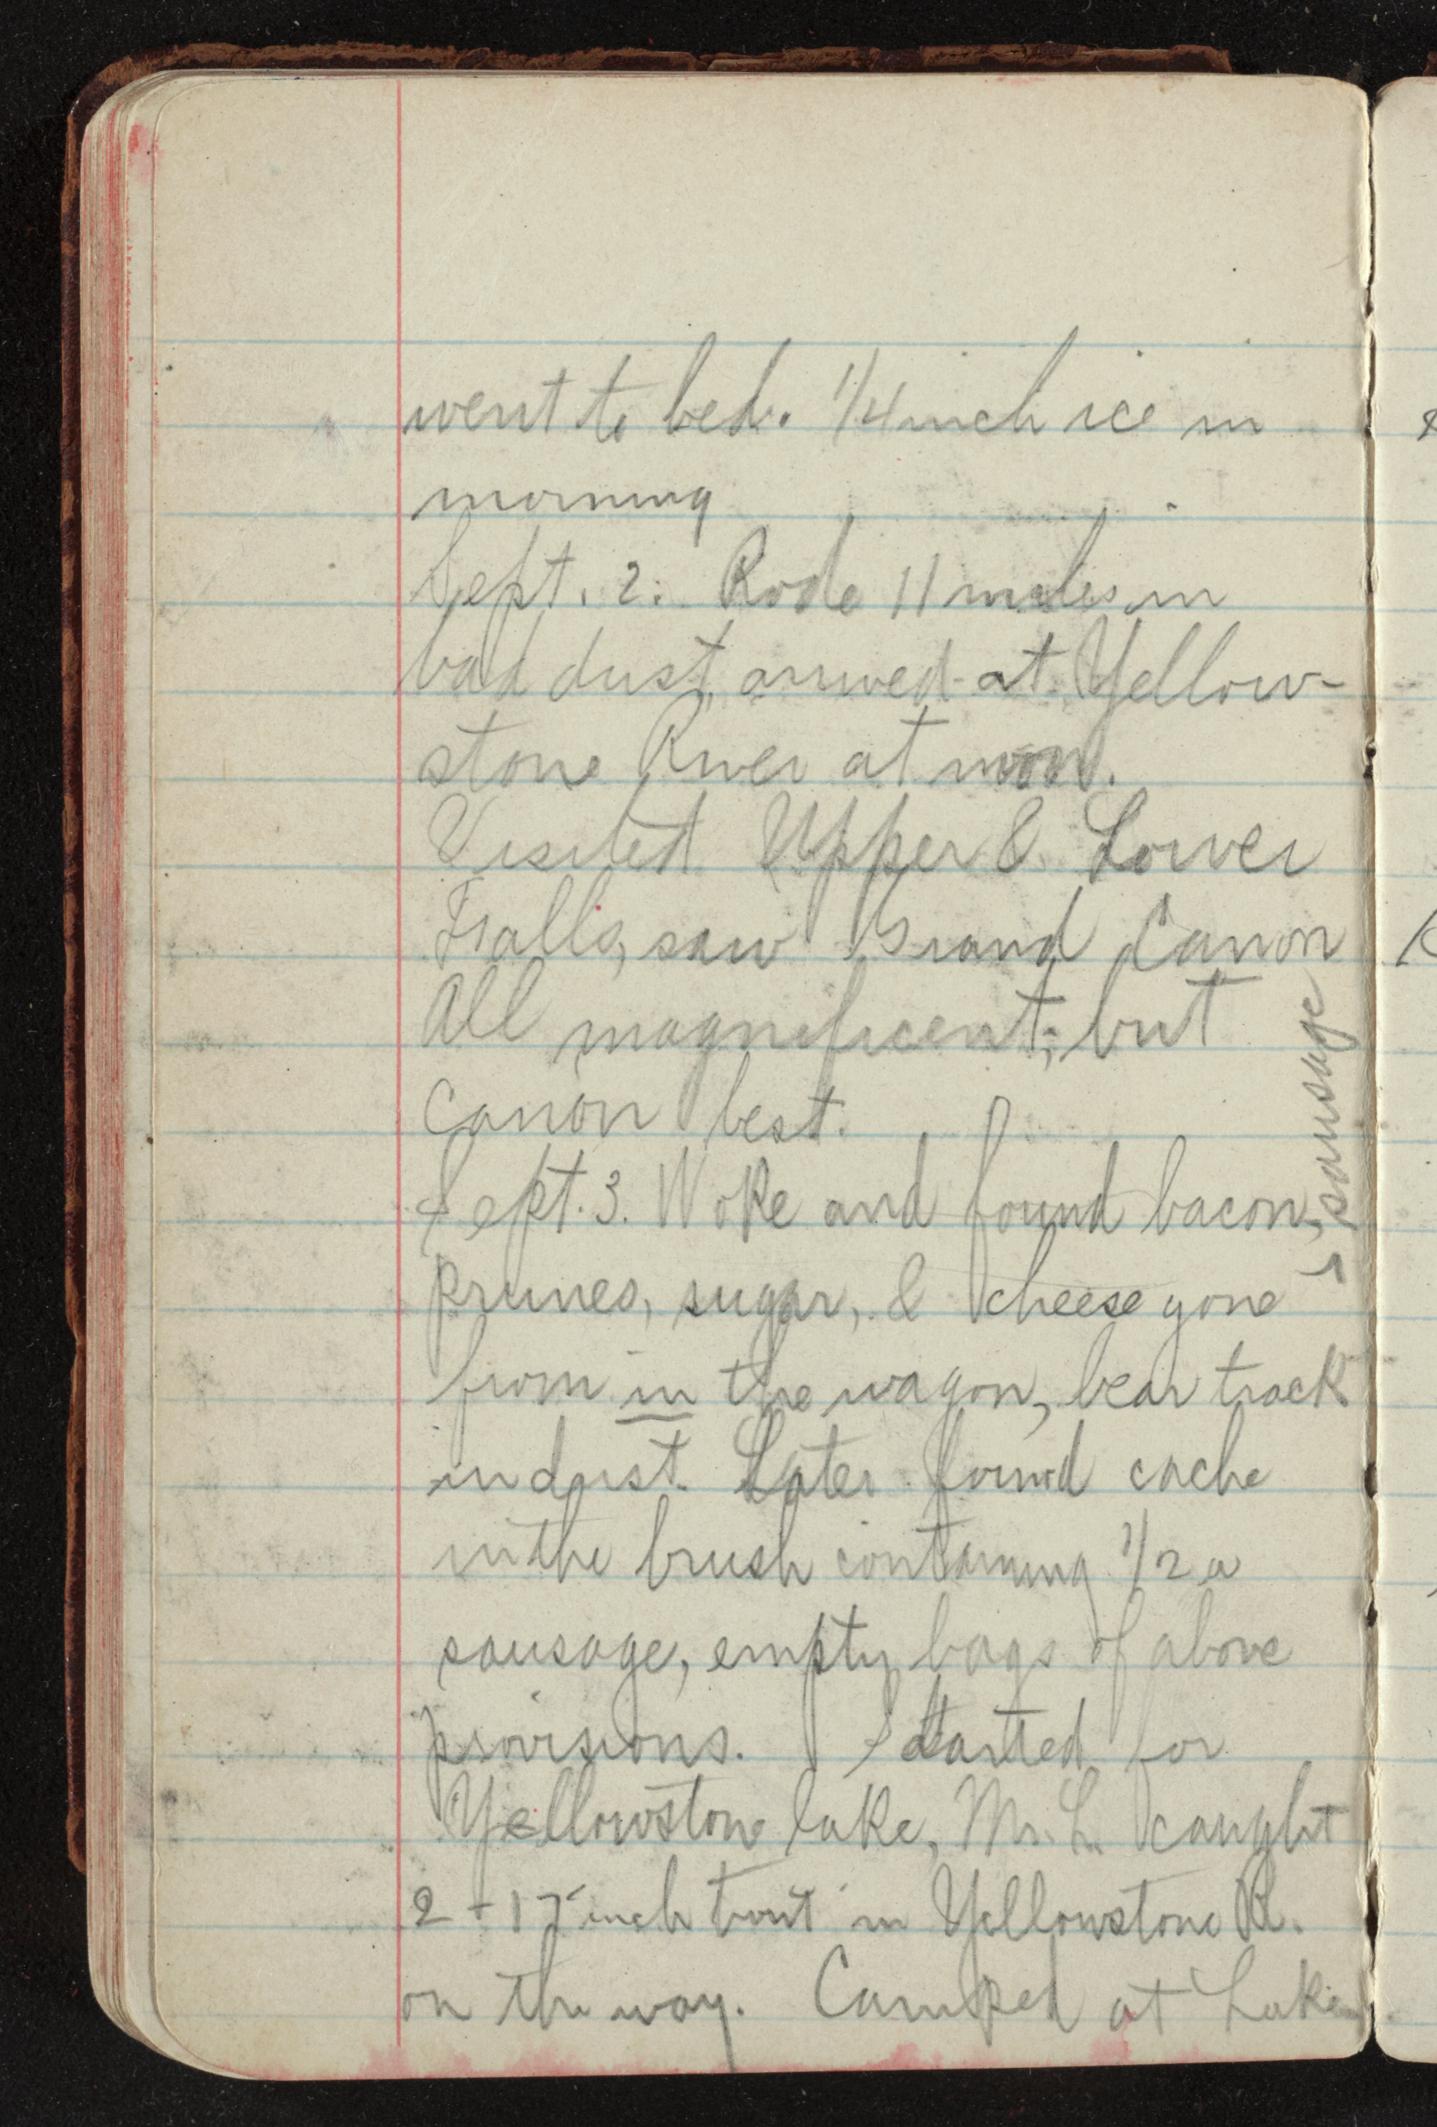 went to bed. 1/4 inch ice in
morning
Sept. 2. Rode 11 miles in
bad dust, arrived at Yellow-
stone River at noon.
Visited Upper & Lower
Falls, saw Grand Canon
All magnificent; but
Canon best.
Sept. 3. Woke and found bacon, sausage,
prunes, sugar, & cheese gone
from in the wagon, bear track
in dust. Later found cache
in the brush containing 1/2 a
sausage, empty bags of above
provisions. Started for
Yellowstone lake, Mr. L. caught
2 - 17 inch trout in Yellowstone R.
on the way. Camped at Lake